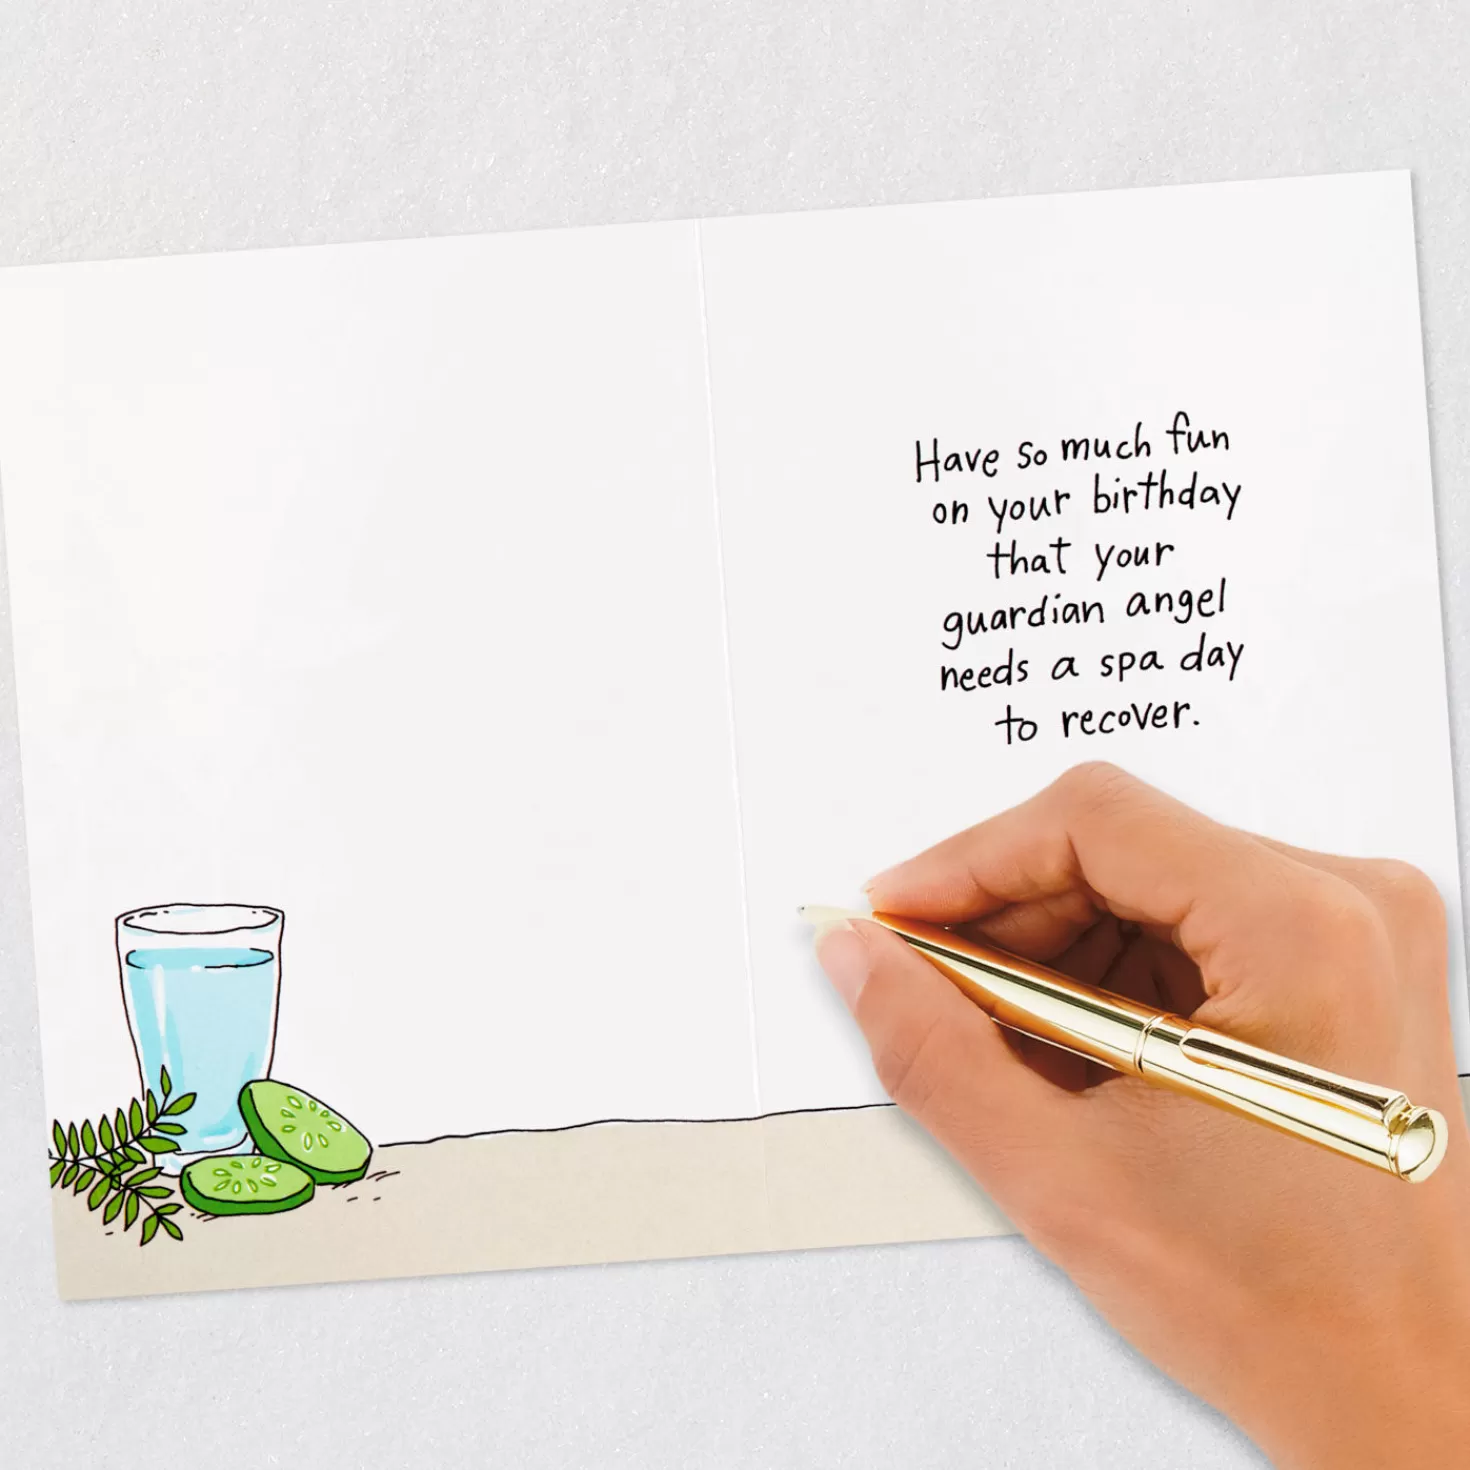 Have so much fun
on your birthday
that your
guardian angel
needs a spa day
to recover.